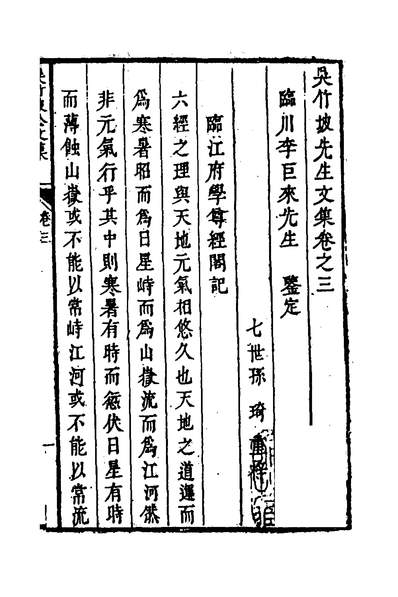 吳竹坡先生文集卷之三
臨川李巨來先生 鑒定
七世孫 琦 重梓
臨江府學尊經閣記
六經之理與天地元氣相悠久也天地之道運而
爲寒暑昭而爲日星峙而爲山嶽流而爲江河然
非元氣行乎其中則寒暑有時而愆伏日星有時
而薄蝕山嶽或不能以常峙江河或不能以常流
吳竹坡全文集
卷三
一